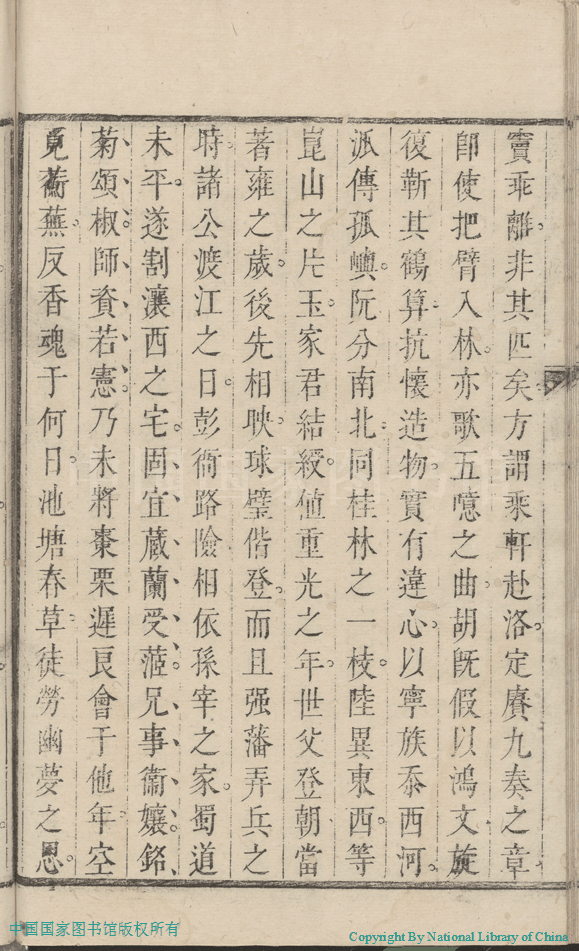 竇乖離。非其匹矣方謂乘軒赴洛。定賡九奏之章
卽使把臂入林。亦歌五噫之曲。胡旣假以鴻文旋
復靳其鶴算。抗懷造物。實有違心。以寧族忝西河。
派傳孤嶼。阮分南北。同桂林之一枝。陸異東西。等
崑山之片玉。家君結綬。値重光之年。世父登朝。當
著雍之歲。後先相映。球璧偕登。而且强藩弄兵之
時。諸公渡江之日。彭衙路險。相依孫宰之家。蜀道
未平。遂割瀼西之宅。固宜葳蘭受茝。兄事衞孃。銘
菊頌椒。師資若憲。乃未將棗栗。遲良會于他年。空
覓蘅蕪。反香魂于何日。池塘春草。徒勞幽夢之恩。
中国国家图书馆版权所有
Copyright By National Library of China